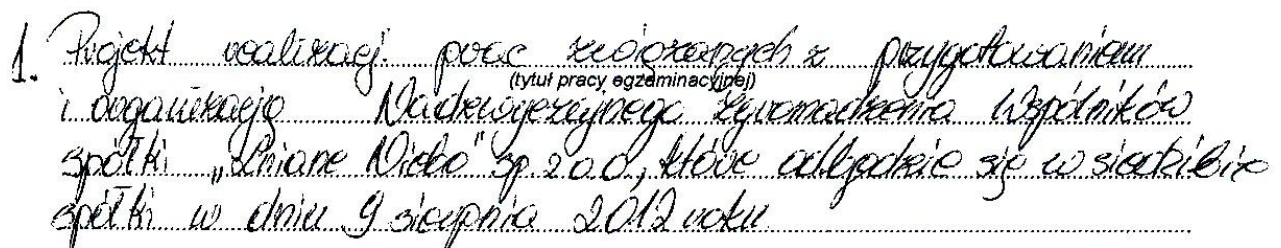 1. Projekt realizacji prac związanych z przygotowaniem
(tytuł pracy egzaminacyjnej)
i organizacją Nadzwyczajnego Zgromadzenia Wspólników
spółki „Lniane Niebo" sp. z o.o., które odbędzie się w siedzibie
spółki w dniu 9 sierpnia 2012 roku